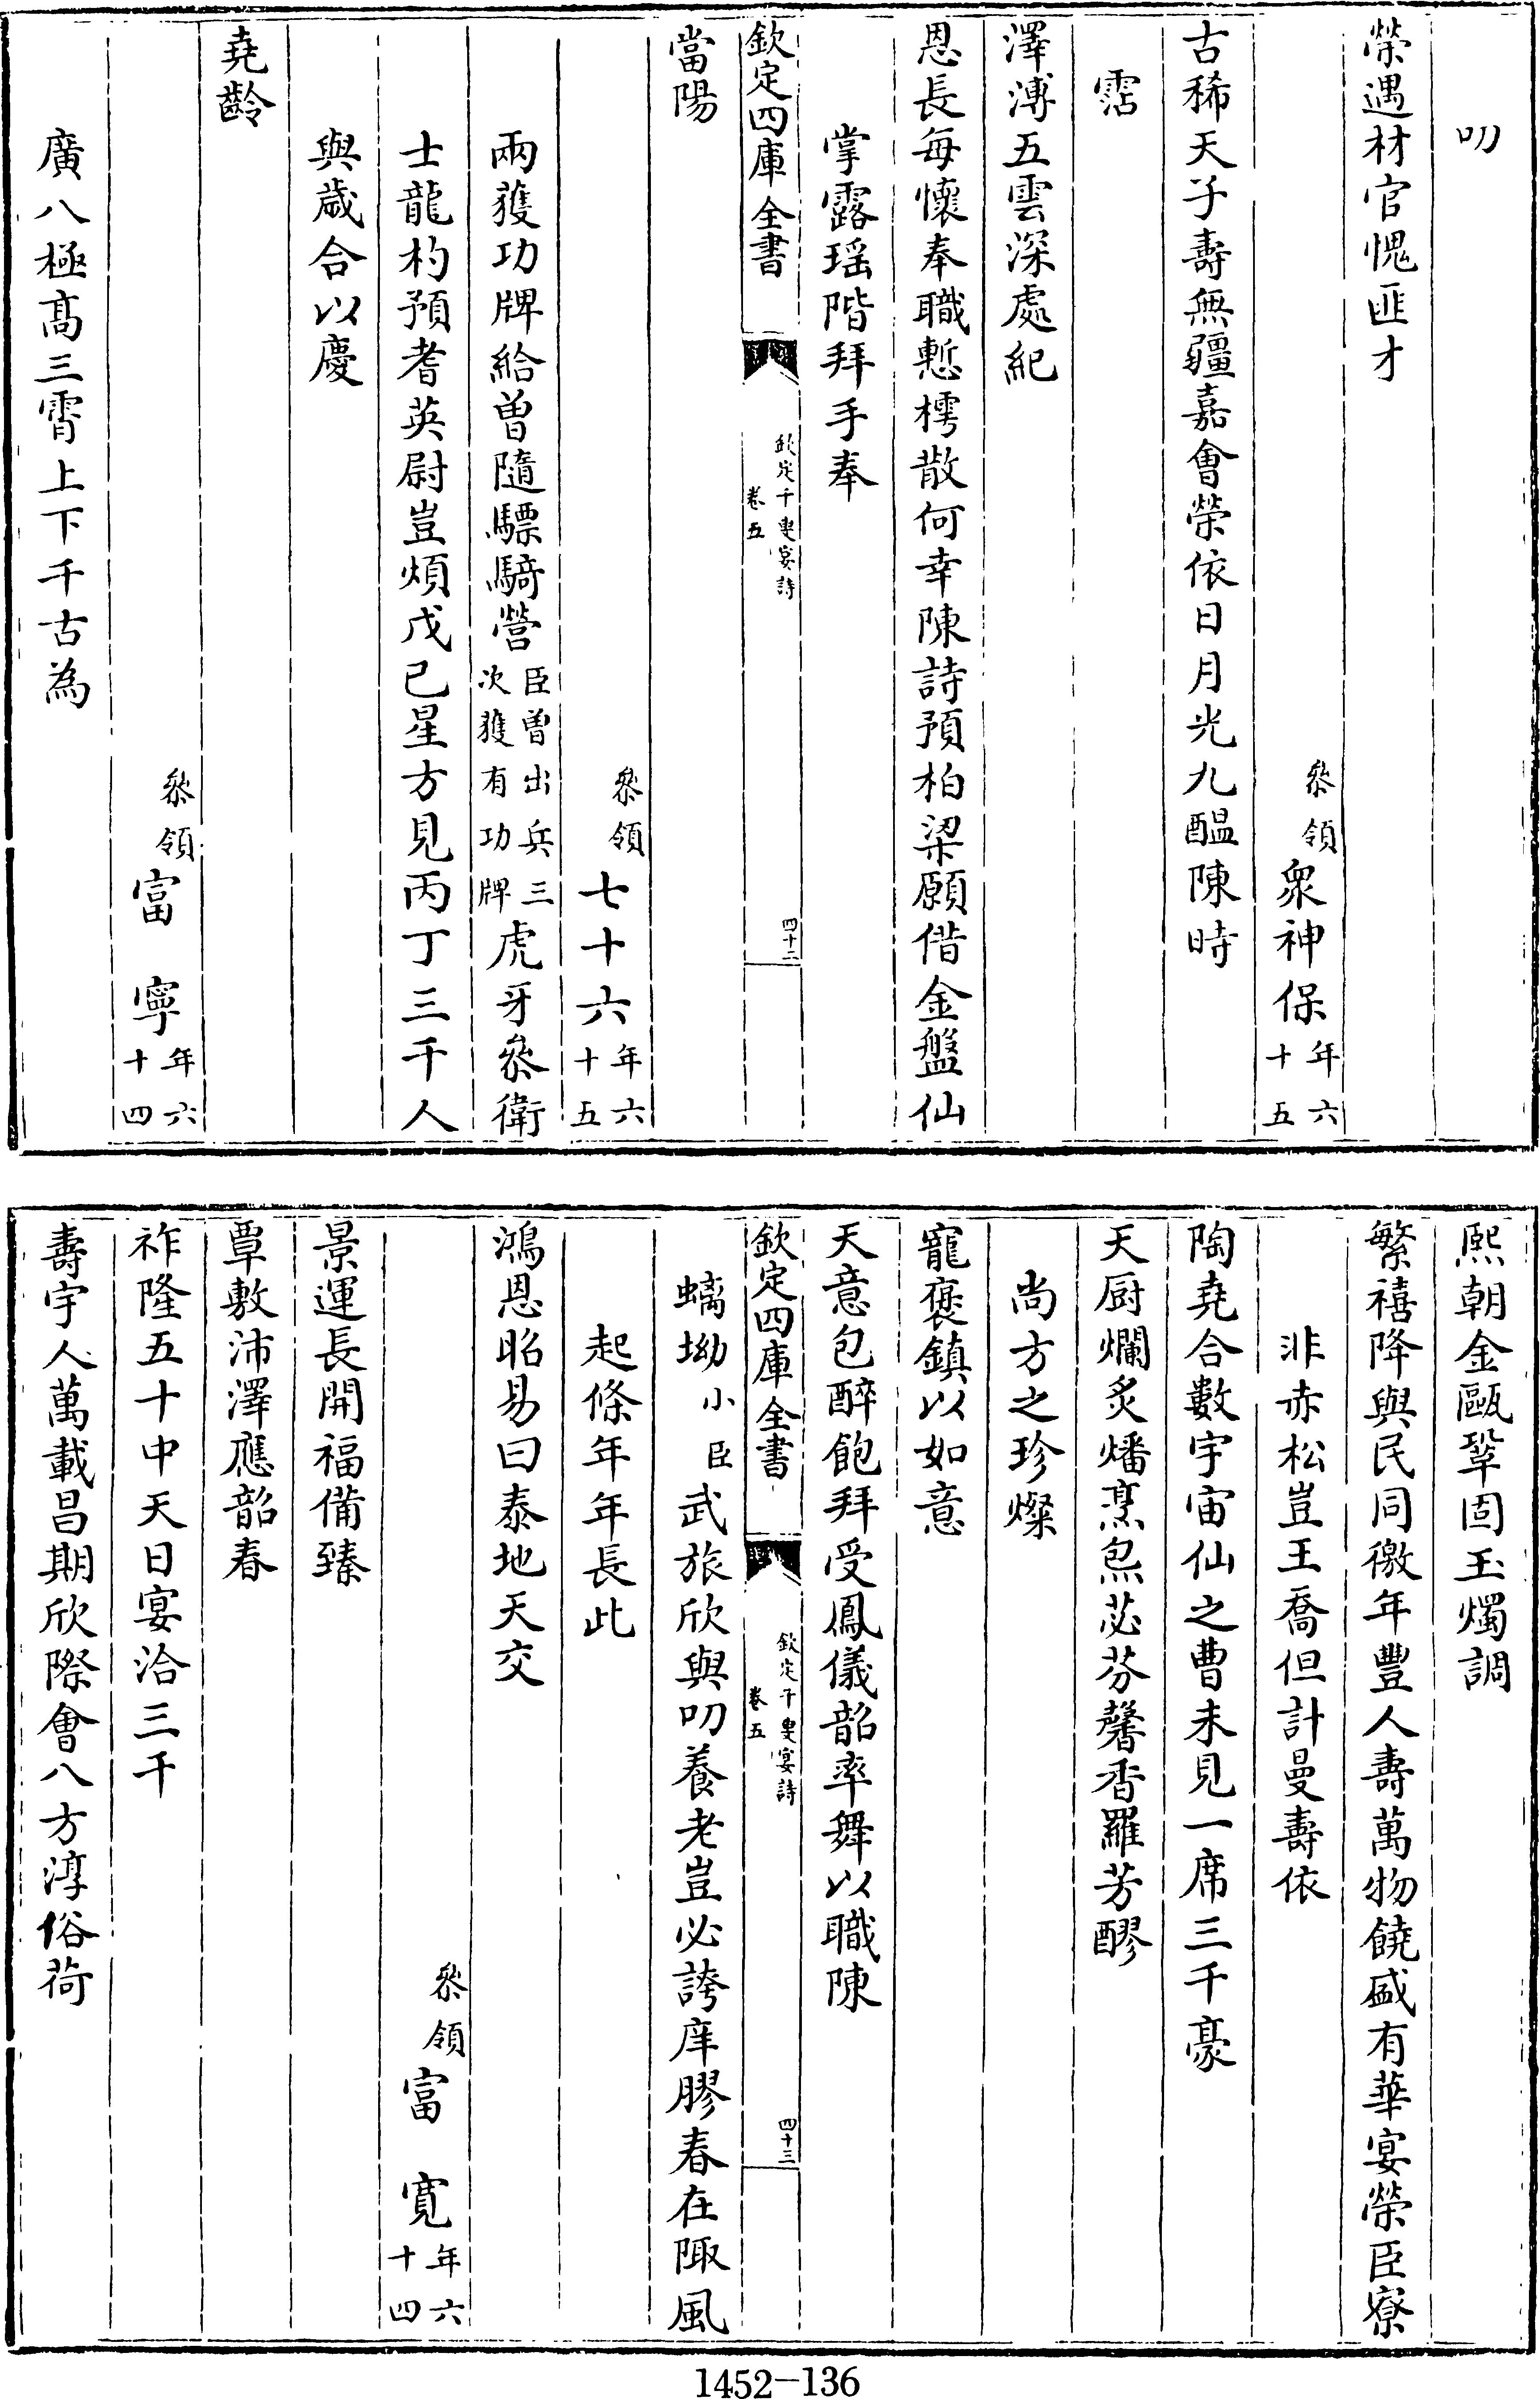 叨
榮遇材官愧匪才
參領衆神保年六十五
古稀天子壽無疆嘉會榮依日月光九醖陳時
霑
澤溥五雲深處紀
恩長每懷奉職慙樗散何幸陳詩預柏梁願借金盤仙
掌露瑶階拜手奉
欽定四庫全書
欽定千叟宴詩
卷五
四十二
當陽
參領七十六年六十五
兩獲功牌給曾隨驃騎營臣曾出兵三次獲有功牌虎牙參衛
士龍杓預耆英尉豈煩戊己星方見丙丁三千人
與歲合以慶
堯齡
參領富寧年六十四
廣八極高三霄上下千古為
熙朝金甌鞏固玉燭調
繁禧降與民同徼年豐人壽萬物饒盛有華宴榮臣寮
非赤松豈王喬但計曼壽依
陶堯合數宇宙仙之曹未見一席三千豪
天厨爛炙燔烹炰苾芬馨香羅芳醪
尚方之珍燦
寵褒鎮以如意
天意包醉飽拜受鳳儀韶率舞以職陳
欽定四庫全書
欽定千叟宴詩
卷五
四十三
螭坳小臣武旅欣與叨養老豈必誇庠膠春在陬風
起條年年長此
鴻恩昭易曰泰地天交
參領富寬年六十四
景運長開福備臻
覃敷沛澤應韶春
祚隆五十中天日宴洽三千
壽宇人萬載昌期欣際會八方淳俗荷
1452-136